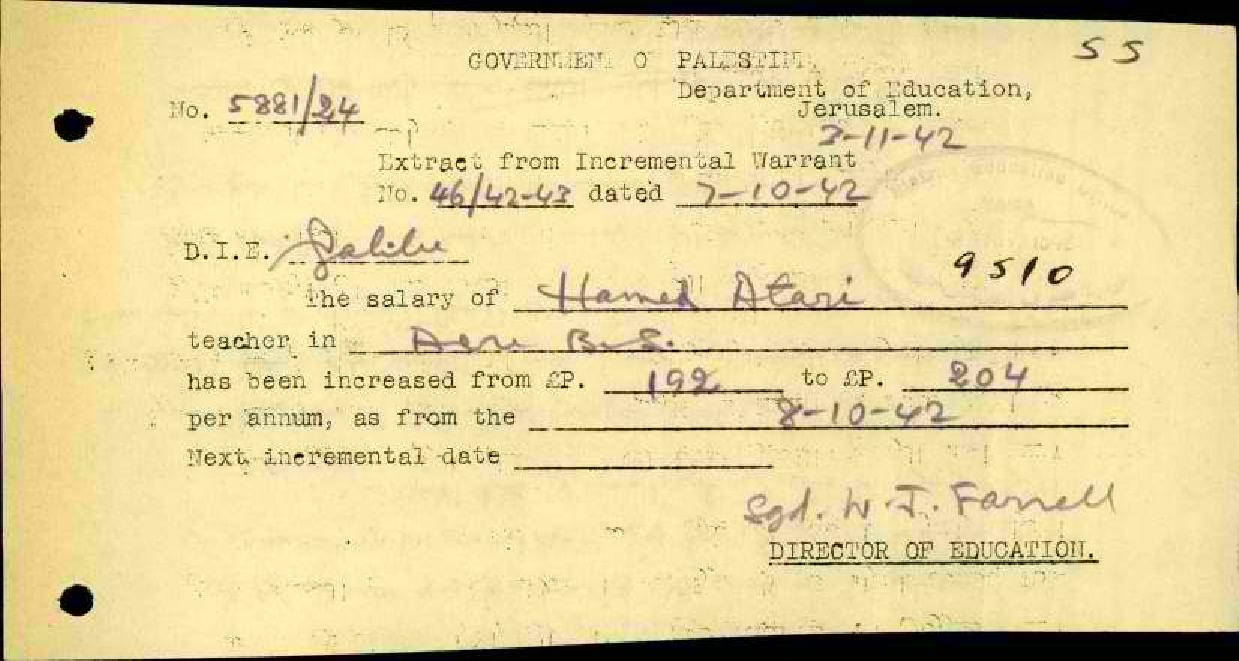 55
GOVERNMENT OF PALESTINE.
Department of Education,
Jerusalem.
No. 5881/24
3-11-42
Extract from Incremental Warrant
No. 46/42-43 dated 7-10-42
D.I.E. Galilee
9510
The salary of Hamed Atari
teacher in Acre B.S.
has been increased from £P. 192 to £P. 204
per annum, as from the 8-10-42
Next incremental date
Sgd. W.J. Farrell
DIRECTOR OF EDUCATION.